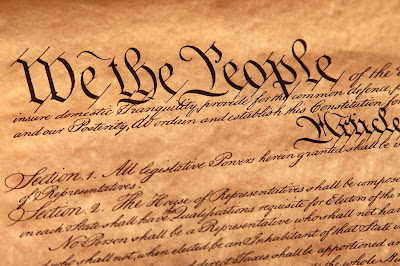 We the People of the
insure domestic Tranquility, provide for the common defence,
and our Posterity, do ordain and establish this Constitution for
Article
Section. 1. All legislative Powers herein granted shall be
of Representatives.
Section. 2. The House of Representatives shall be compose
in each State shall have the Qualifications requisite for Electors of the
No Person shall be a Representative who shall not have
who shall not, when elected, be an Inhabitant of that State
Taxes shall be apportioned
the whole Nu